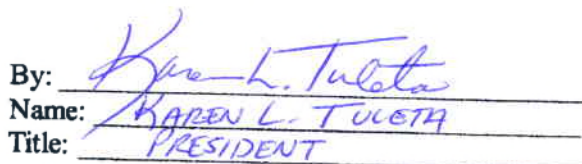 By: Karen L. Tuleta
Name: KAREN L. TULETA
Title: PRESIDENT